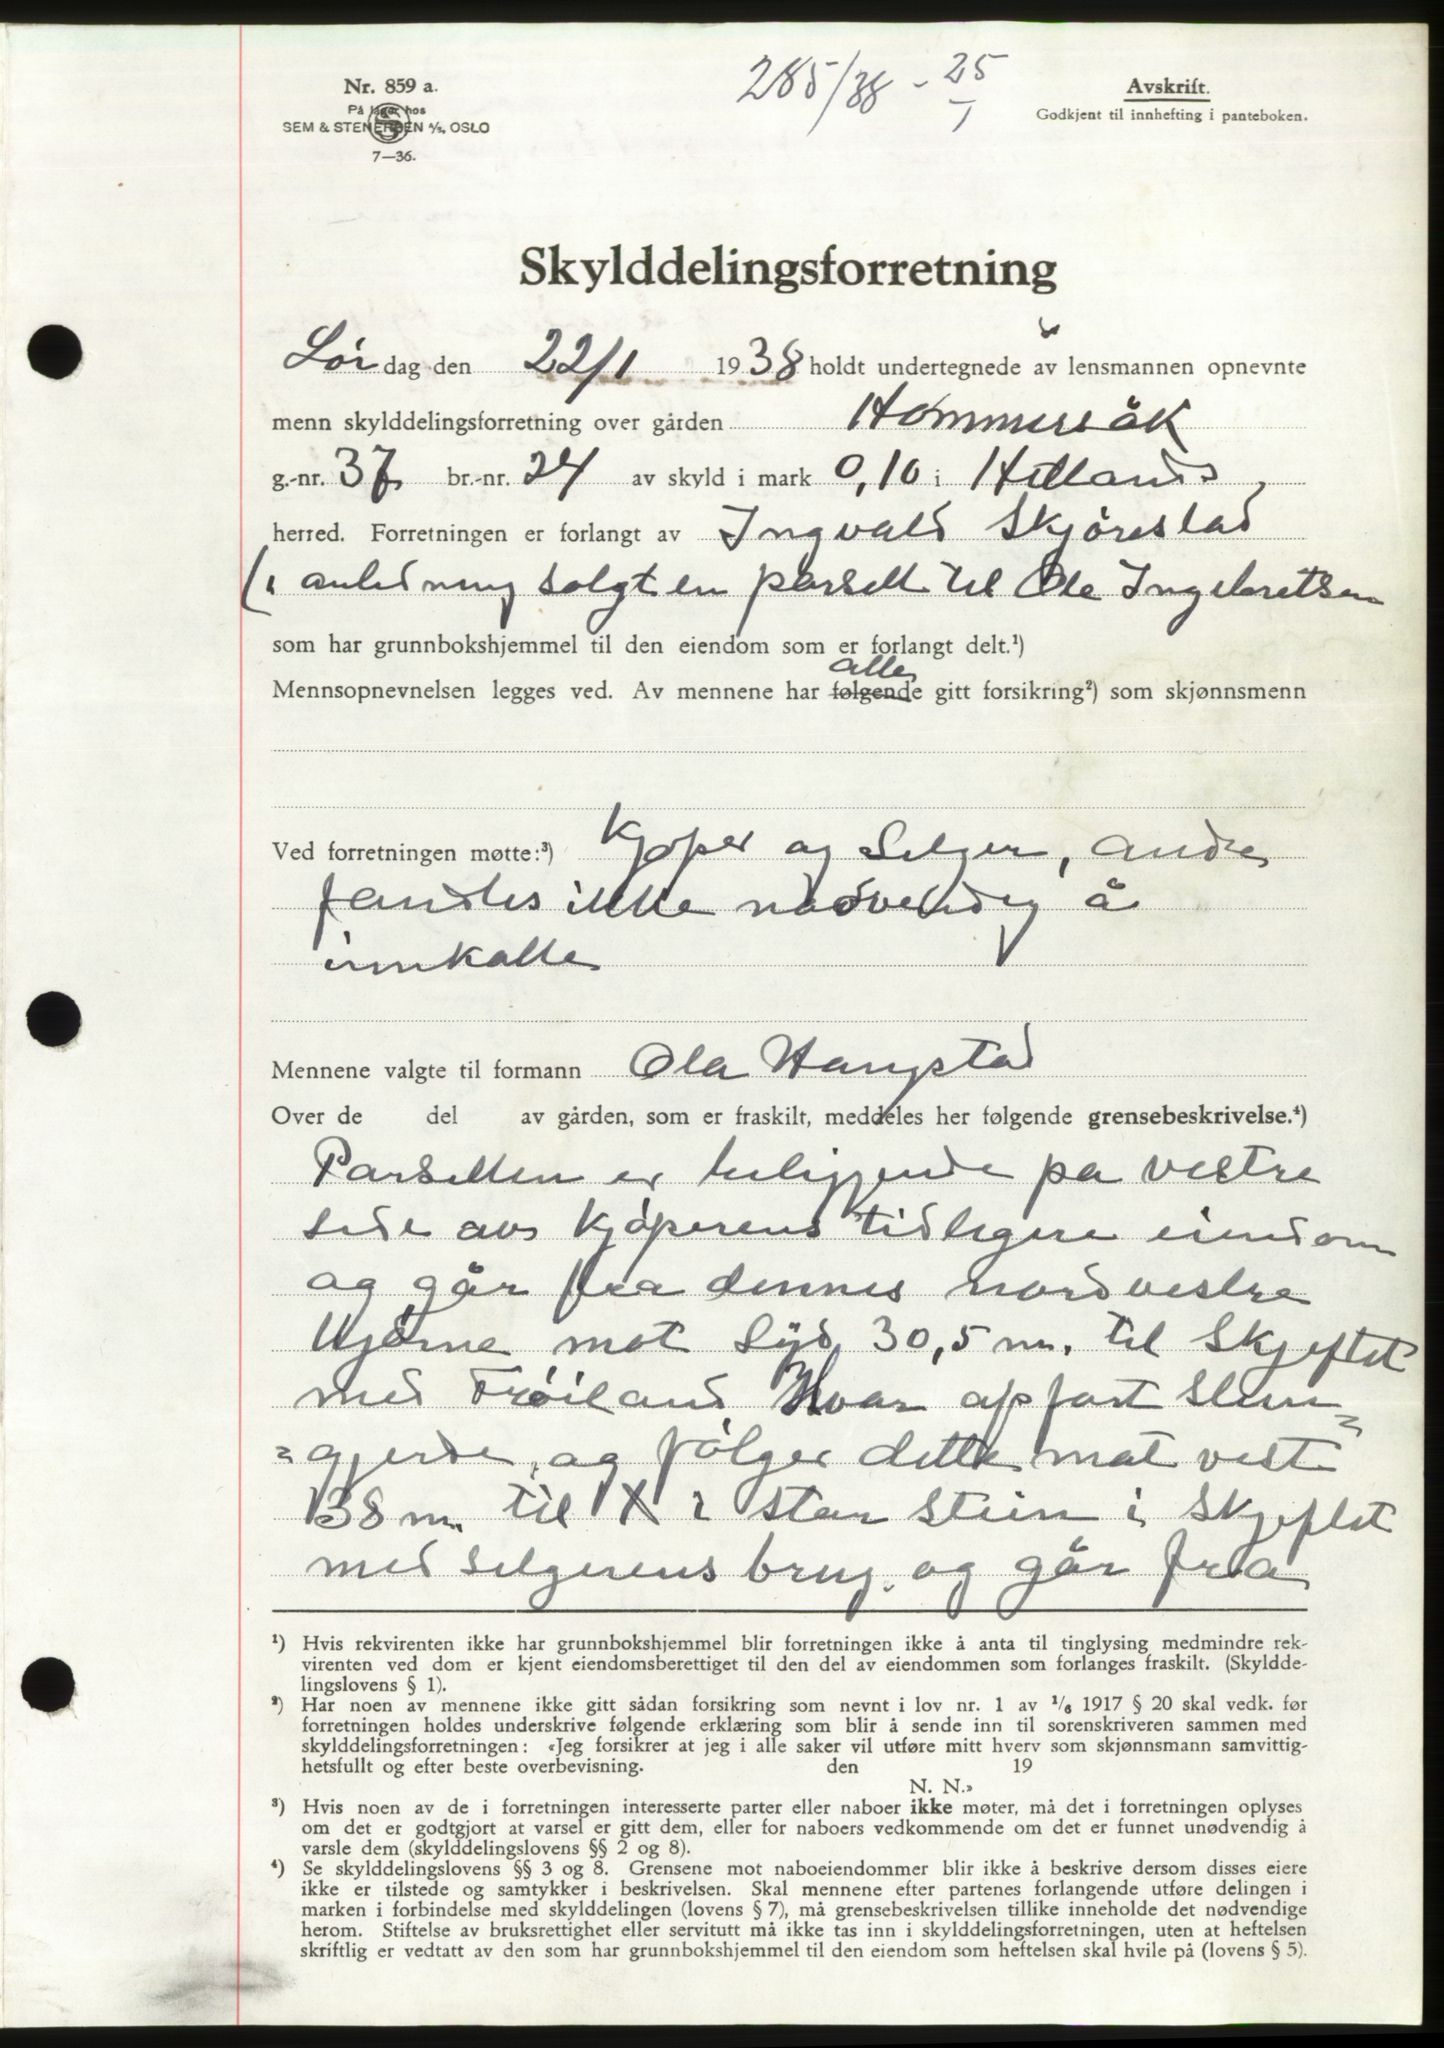 285/38 - 25/1
Nr. 859 a.
På lager hos
SEM & STENERSEN A/S, OSLO
7—36.
Avskrift.
Godkjent til innhefting i panteboken.
Skylddelingsforretning
Lør dag den 22/1 1938 holdt undertegnede av lensmannen opnevnte
menn skylddelingsforretning over gården Hommersåk
g.-nr. 37 br.-nr. 24 av skyld i mark 0,10 i Hetlands
herred. Forretningen er forlangt av Ingvald Skjørestad
(i anledning solgt en parsell til Ole Ingebretsen
som har grunnbokshjemmel til den eiendom som er forlangt delt.¹)
alle
Mennsopnevnelsen legges ved. Av mennene har følgende gitt forsikring²) som skjønnsmenn
Ved forretningen møtte:³) Kjøper og Selger, andre
fandtes ikke nødvendig å
innkalle
Mennene valgte til formann Ola Haugstad
Over de del av gården, som er fraskilt, meddeles her følgende grensebeskrivelse.⁴)
Parsellen er beliggende på vestre
side av kjøperens tidligere eiendom
og går fra dennes nordvestre
hjørne mot Syd 30,5 m. til Skjeftet
med Frøiland Hvor opført Sten=
=gjerde, og følger dette mot vest
138 m. til X i stor Stein i Skjeftet
med selgerens brug. og går fra
¹) Hvis rekvirenten ikke har grunnbokshjemmel blir forretningen ikke å anta til tinglysing medmindre rek-
virenten ved dom er kjent eiendomsberettiget til den del av eiendommen som forlanges fraskilt. (Skyldde-
lingslovens § 1).
²) Har noen av mennene ikke gitt sådan forsikring som nevnt i lov nr. 1 av 1/6 1917 § 20 skal vedk. før
forretningen holdes underskrive følgende erklæring som blir å sende inn til sorenskriveren sammen med
skylddelingsforretningen: «Jeg forsikrer at jeg i alle saker vil utføre mitt hverv som skjønnsmann samvittig-
hetsfullt og efter beste overbevisning. den 19
N. N.»
³) Hvis noen av de i forretningen interesserte parter eller naboer ikke møter, må det i forretningen oplyses
om det er godtgjort at varsel er gitt dem, eller for naboers vedkommende om det er funnet unødvendig å
varsle dem (skylddelingslovens §§ 2 og 8).
⁴) Se skylddelingslovens §§ 3 og 8. Grensene mot naboeiendommer blir ikke å beskrive dersom disses eiere
ikke er tilstede og samtykker i beskrivelsen. Skal mennene efter partenes forlangende utføre delingen i
marken i forbindelse med skylddelingen (lovens § 7), må grensebeskrivelsen tillike inneholde det nødvendige
herom. Stiftelse av bruksrettighet eller servitutt må ikke tas inn i skylddelingsforretningen, uten at heftelsen
skriftlig er vedtatt av den som har grunnbokshjemmel til den eiendom som heftelsen skal hvile på (lovens § 5).